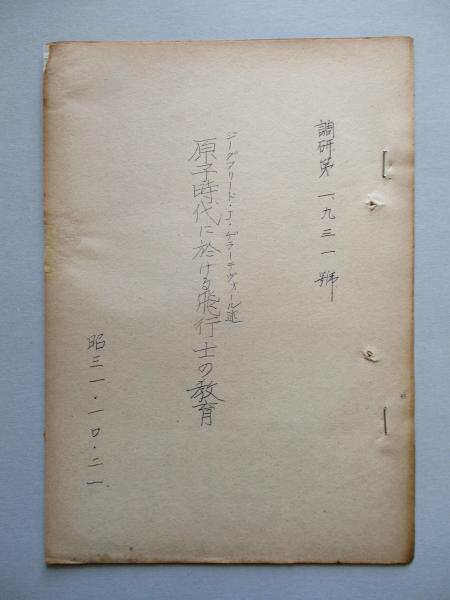 調研第一、九三一號
ジーグフリード・J・ゲラーテヴォール述
原子時代に於ける飛行士の教育
昭三一・一〇・二一